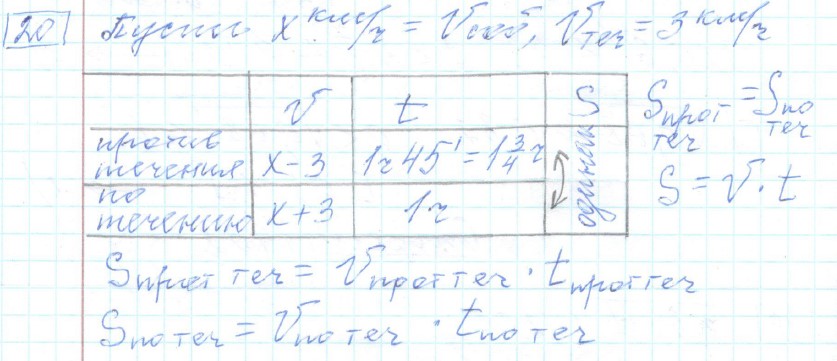 20 Пусть x км/ч = Vсоб, Vтеч = 3 км/ч
V t S
против течения x-3 1ч 45' = 1 3/4 ч одинак
по течению x+3 1ч
Sпрот теч = Sпо теч
S = V · t
Sпрот теч = Vпрот теч · tпрот теч
Sпо теч = Vпо теч · tпо теч